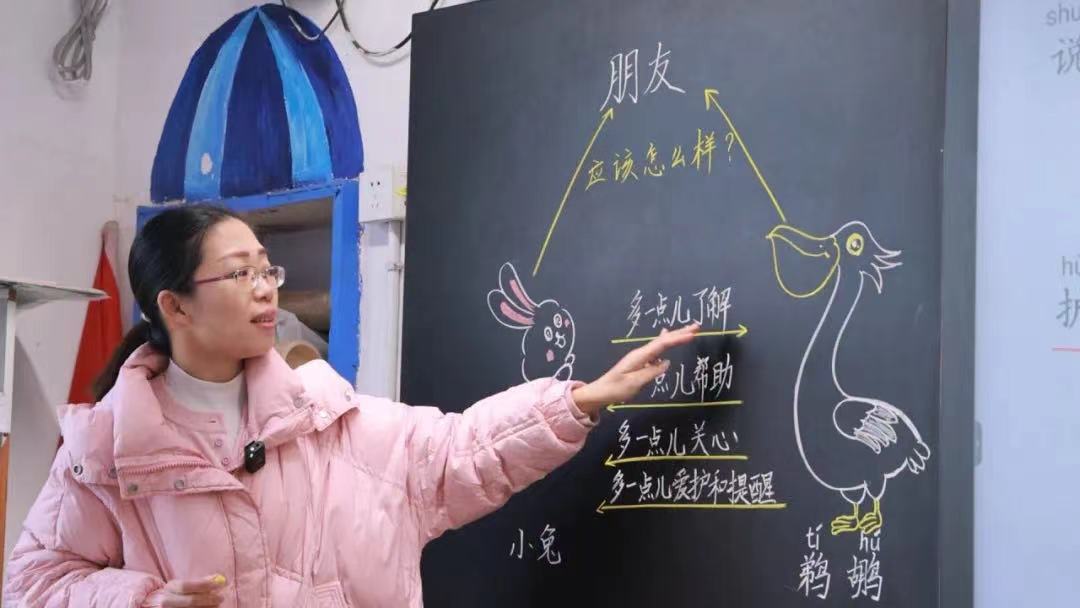 朋友
应该怎么样？
多一点儿了解
点儿帮助
多一点儿关心
多一点儿爱护和提醒
小兔
tí hú
鹈鹕
shu
说
hù
护